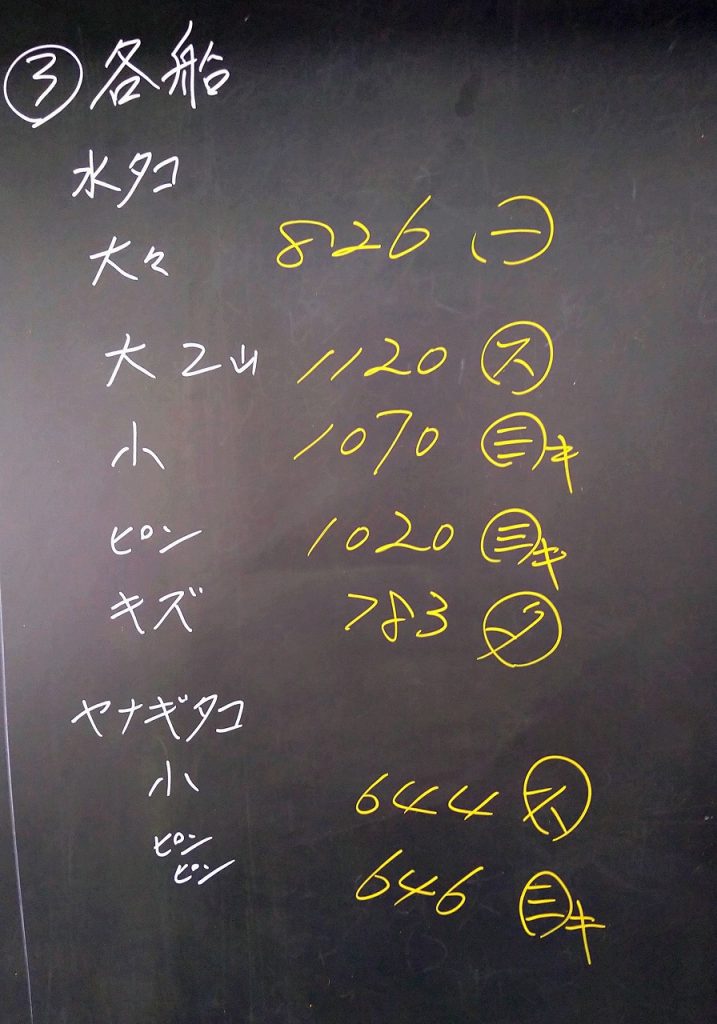 ③各船
水タコ
大々 826 ㊀
大 2山 1120 ㋜
小 1070 ㊂キ
ピン 1020 ㊂キ
キズ 783
ヤナギタコ
小 644
ピン
ピン 646 ㊂キ